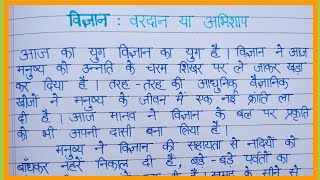 विज्ञान : वरदान या अभिशाप
आज का युग विज्ञान का युग है । विज्ञान ने आज
मनुष्य को उन्नति के चरम शिखर पर ले जाकर खड़ा
कर दिया है । तरह - तरह की आधुनिक वैज्ञानिक
खोजों ने मनुष्य के जीवन में एक नई क्रांति ला
दी है । आज मानव ने विज्ञान के बल पर प्रकृति
को भी अपनी दासी बना लिया है ।
मनुष्य ने विज्ञान की सहायता से नदियों को
बाँधकर नहरें निकाल दी हैं, बड़े - बड़े पर्वतों का